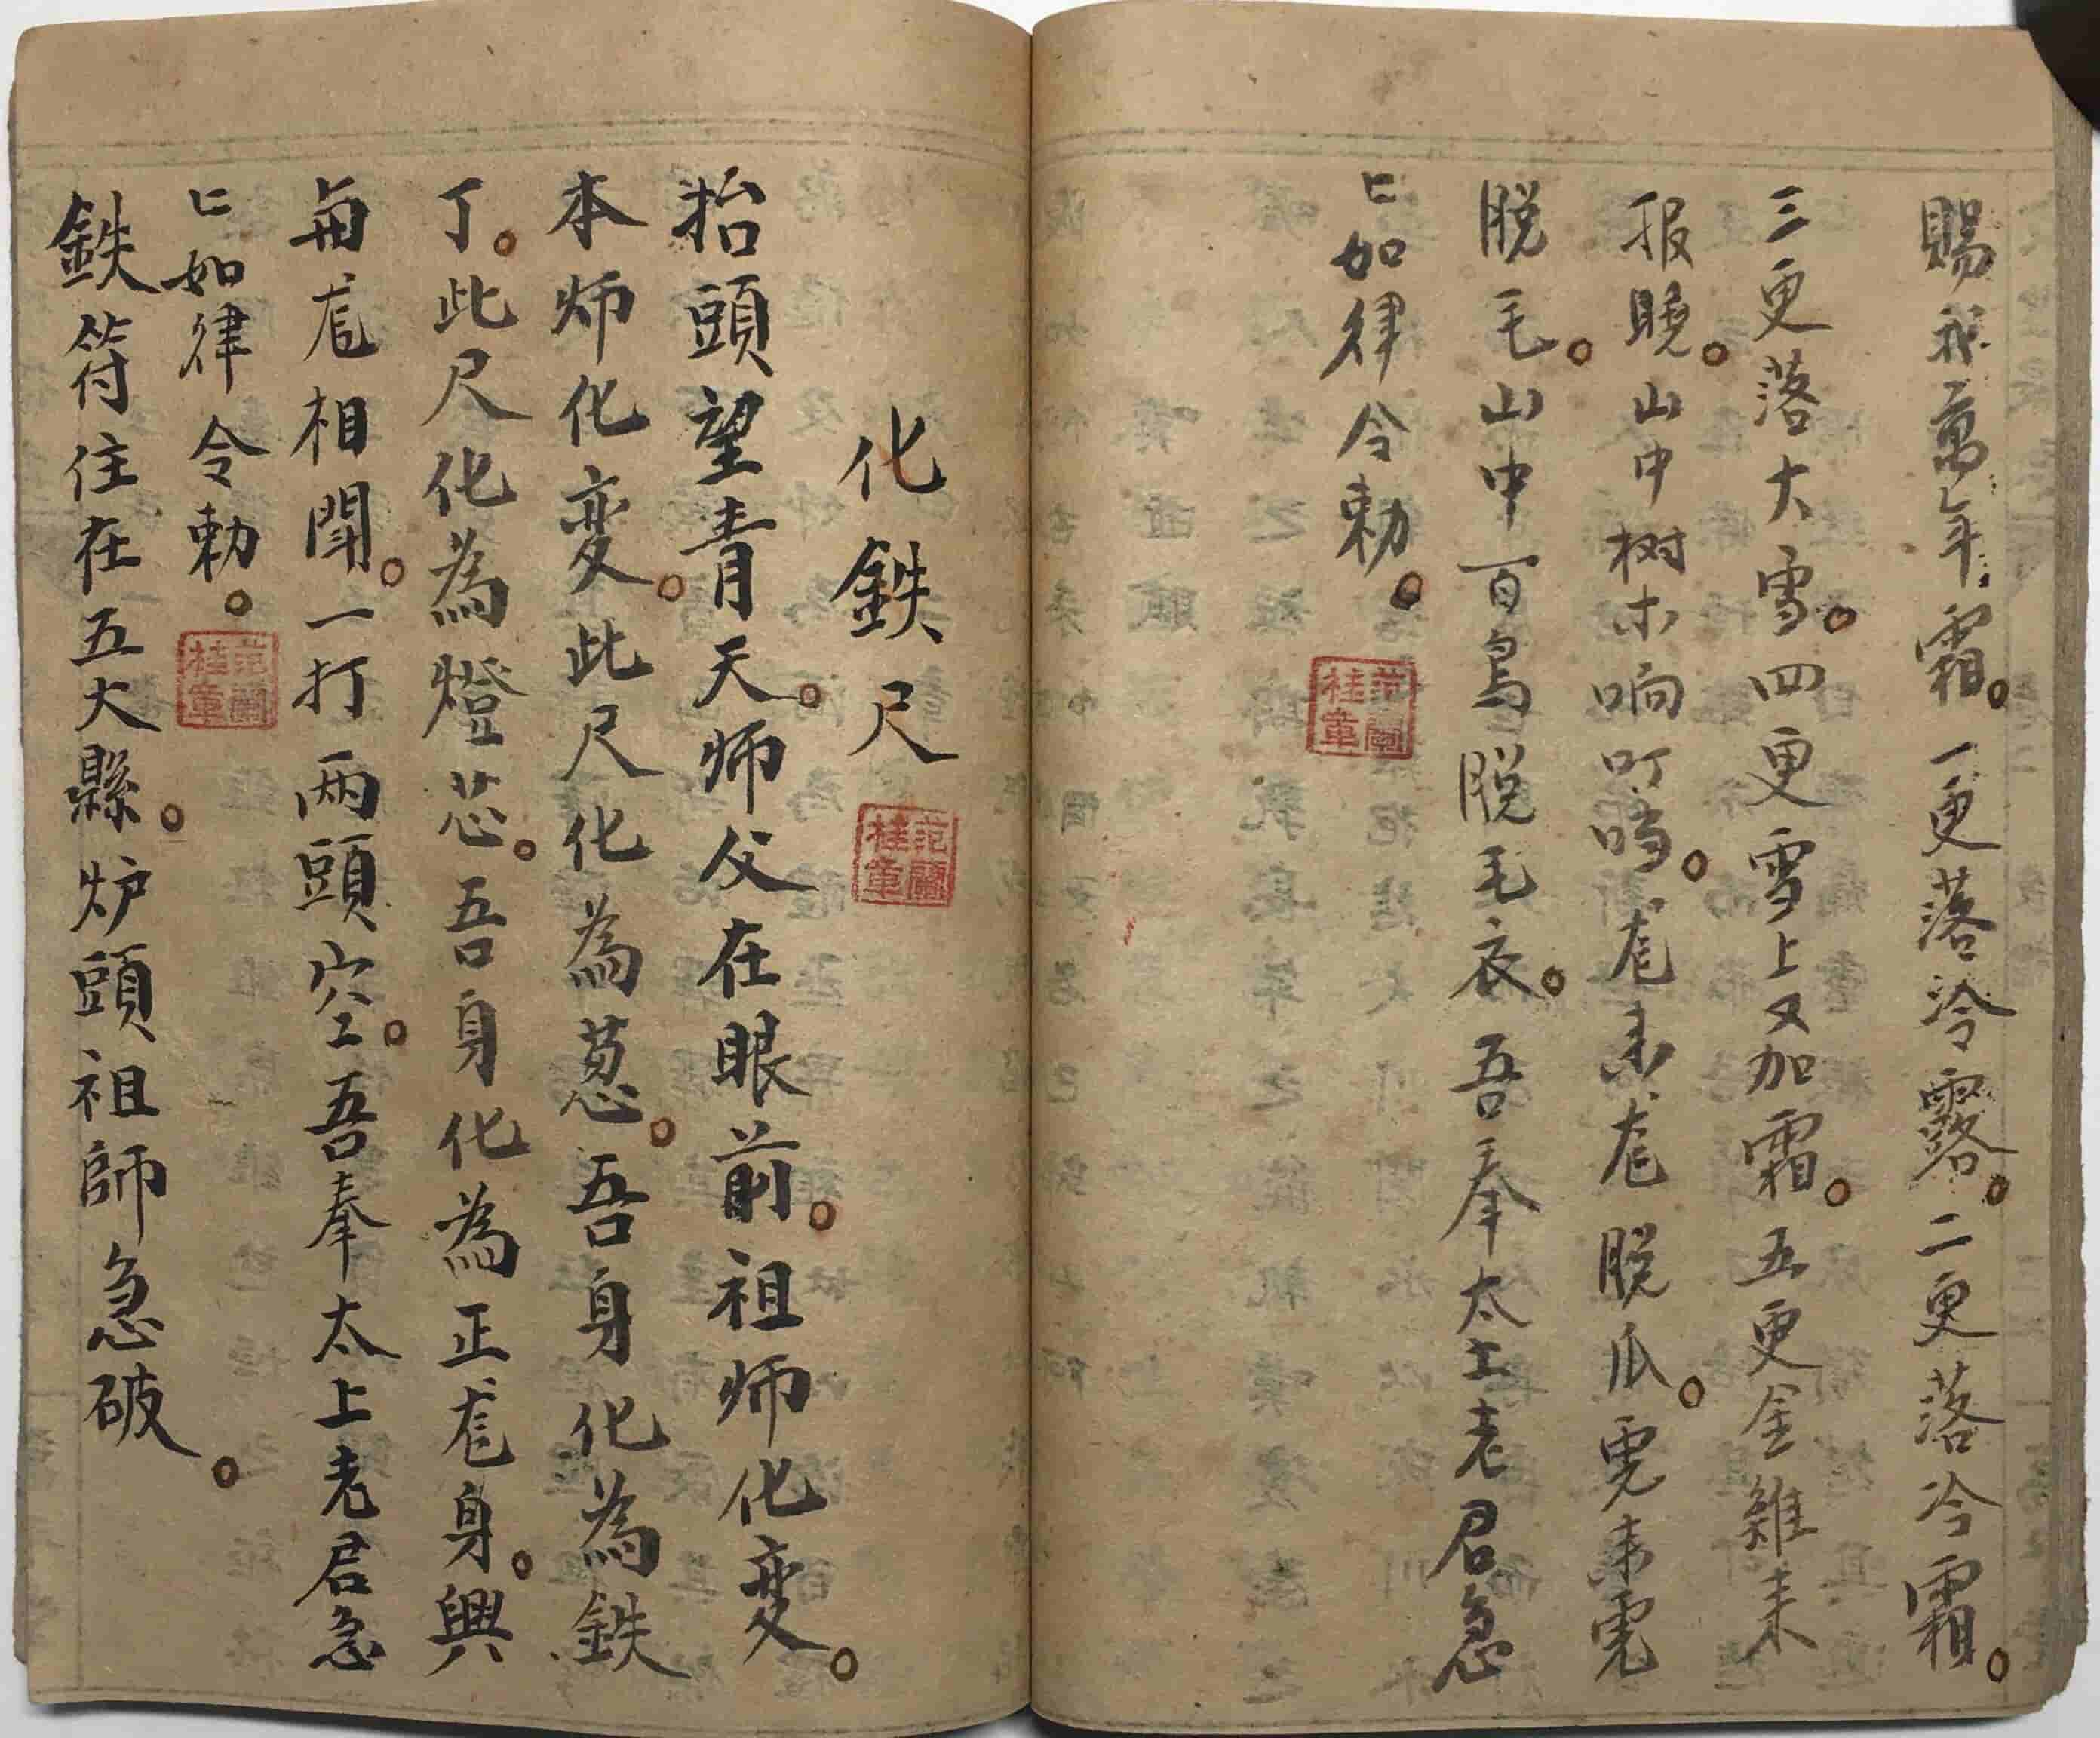 賜我萬年霜。一更落冷露。二更落冷霜。
三更落大雪。四更雪上又加霜。五更金雞来
报曉。山中树木响叮噹。尨来尨脱爪。虎来虎
脱毛。山中百鳥脱毛衣。吾奉太上老君急
匕如律令勅。
范蘭桂章
化鉄尺
范蘭桂章
抬頭望青天。师父在眼前。祖师化变。
本师化变。此尺化為葱。吾身化為鉄
丁。此尺化為燈芯。吾身化為正尨身。與
每尨相閗。一打两頭空。吾奉太上老君急
匕如律令勅。
范蘭桂章
鉄符住在五大縣。炉頭祖師急破。